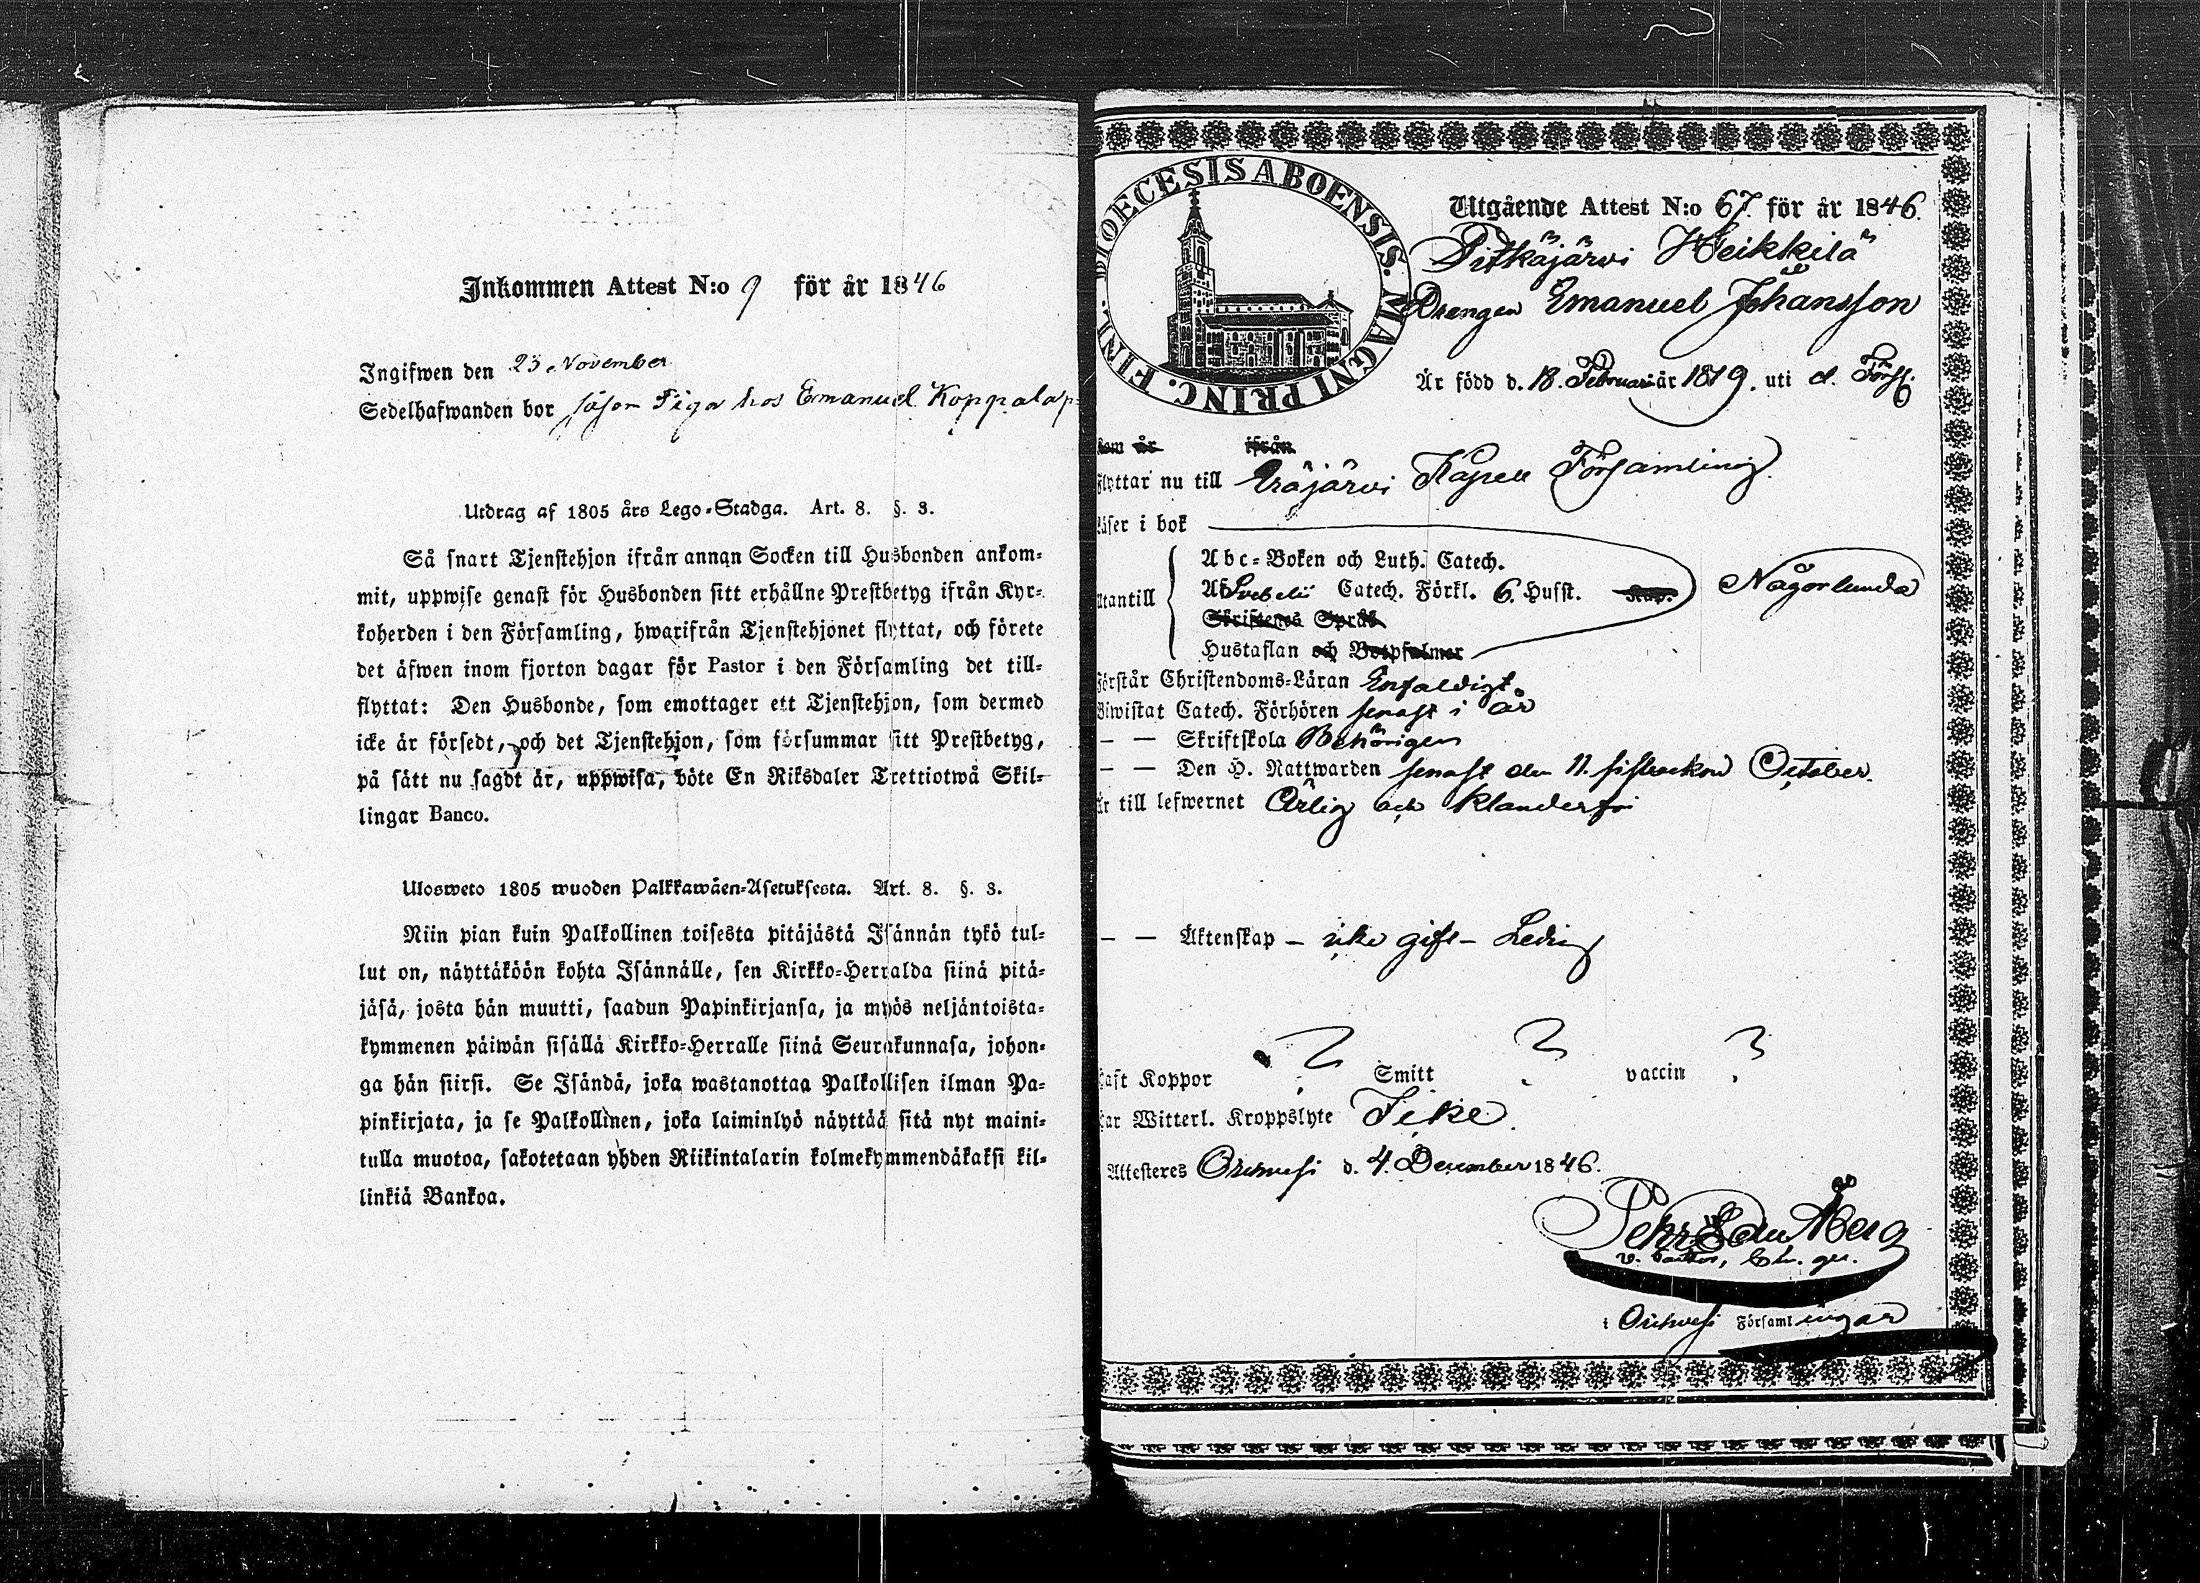 Inkommen Attest N:o 9 för år 1846
Ingifwen den 23 November
Sedelhafwanden bor såsom Piga hos Emanuel Koppala
Utdrag af 1805 års Lego-Stadga. Art. 8. §. 3.
Så snart Tjenstehjon ifrån annan Socken till Husbonden ankom-
mit, uppwise genast för Husbonden sitt erhållne Prestbetyg ifrån Kyr-
koherden i den Församling, hwarifrån Tjenstehjonet flyttat, och förete
det äfwen inom fjorton dagar för Pastor i den Församling det till-
flyttat: Den Husbonde, som emottager ett Tjenstehjon, som dermed
icke är försedt, och det Tjenstehjon, som försummar sitt Prestbetyg,
på sätt nu sagdt är, uppwisa, böte En Riksdaler Trettiotwå Skil-
lingar Banco.
Ulosweto 1805 wuoden Palkkawäen-Asetuksesta. Art. 8. §. 3.
Niin pian kuin Palkollinen toisesta pitäjästä Isännän tykö tul-
lut on, näyttäköön kohta Isännälle, sen Kirkko-Herralda siinä pitä-
jäsä, josta hän muutti, saadun Papinkirjansa, ja myös neljäntoista-
kymmenen päiwän sisällä Kirkko-Herralle siinä Seurakunnasa, johon-
ga hän siirsi. Se Isändä, joka wastanottaa Palkollisen ilman Pa-
pinkirjata, ja se Palkollinen, joka laiminlyö näyttää sitä nyt maini-
tulla muotoa, sakotetaan yhden Riikintalarin kolmekymmendäkaksi kil-
linkiä Bankoa.
DIOECESIS ABOENSIS. MAGNI PRINC. FINL.
Utgående Attest N:o 67. för år 1846.
Pitkäjärvi Heikkilä
Drengen Emanuel Johansson
Är född d. 18. Februari år 1819. uti d. Förs.
som är ifrån
Flyttar nu till Eräjärvi Kapell Församling.
Läser i bok
Abc-Boken och Luth. Catech.
Utantill Svebelii Catech. Förkl. 6. Hufst. Kap. Någorlunda
Skriftenes Språk
Hustaflan och Botpsalmer
Förstår Christendoms-Läran Enfaldigt
Biwistat Catech. Förhören senast i år
— — Skriftskola Behörigen
— — Den H. Nattwarden senast den 11. sistwekne October.
Är till lefwernet Ärlig och Klanderfri
— — Äktenskap – icke gift – Ledig
Haft Koppor ? Smitt ? vaccin ?
Har Witterl. Kroppslyte Icke.
Attesteres Orihvesi d. 4. December 1846.
Pehr Edu Åberg
v. Pastor,
i Orihvesi Församlingar